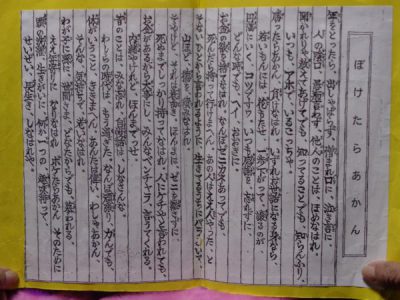 ぼけたらあかん
年をとったら 出しゃばらず 憎まれ口に 泣き言に
人のかげ口 愚痴言わず、他人のことは、ほめなはれ
聞かれりゃ 教えてあげてでも 知ってることでも 知らんふり
いつも、アホで、いるこっちゃ。
勝ったらあかん 負けなはれ いずれお世話になる身なら、
若いもんには 花持たせ 一歩さがって、譲るのが、
円満に いく、コツですわ。いつも感謝を 忘れずに、
どんな時でも へえ おおきに。
お金の欲を 捨てなはれ なんぼゼニカネ あってでも、
死んだら 持って行けまへん あの人は ええ人やった、と
そないに ひとから 言われるよう 生きてるうちに バラまいて、
山ほど、徳を 積みなはれ
そやけど、それは 表向き、ほんまは、ゼニを 離さずに、
死ぬまで しっかり 持ってなはれ 人にケチやと 言われても、
お金が あるから 大事にし みんな ベンチャラ、言うてくれる。
内緒やけれど、ほんまでっせ。
昔のことは、みな忘れ 自慢話は、しなさんな、
わしらの時代は、もう過ぎた、なんぼ 頑張り 力んでも、
体がいうこと、ききまへん あんたは偉い、わしゃあかん、
そんな 気持ちで おりなはれ。
わが子に 孫に 世間さま、どなたからでも 慕われる、
ええ年寄りに なりなはれ ボケたら あかん そのために
せいぜい、長生き しなはれや。